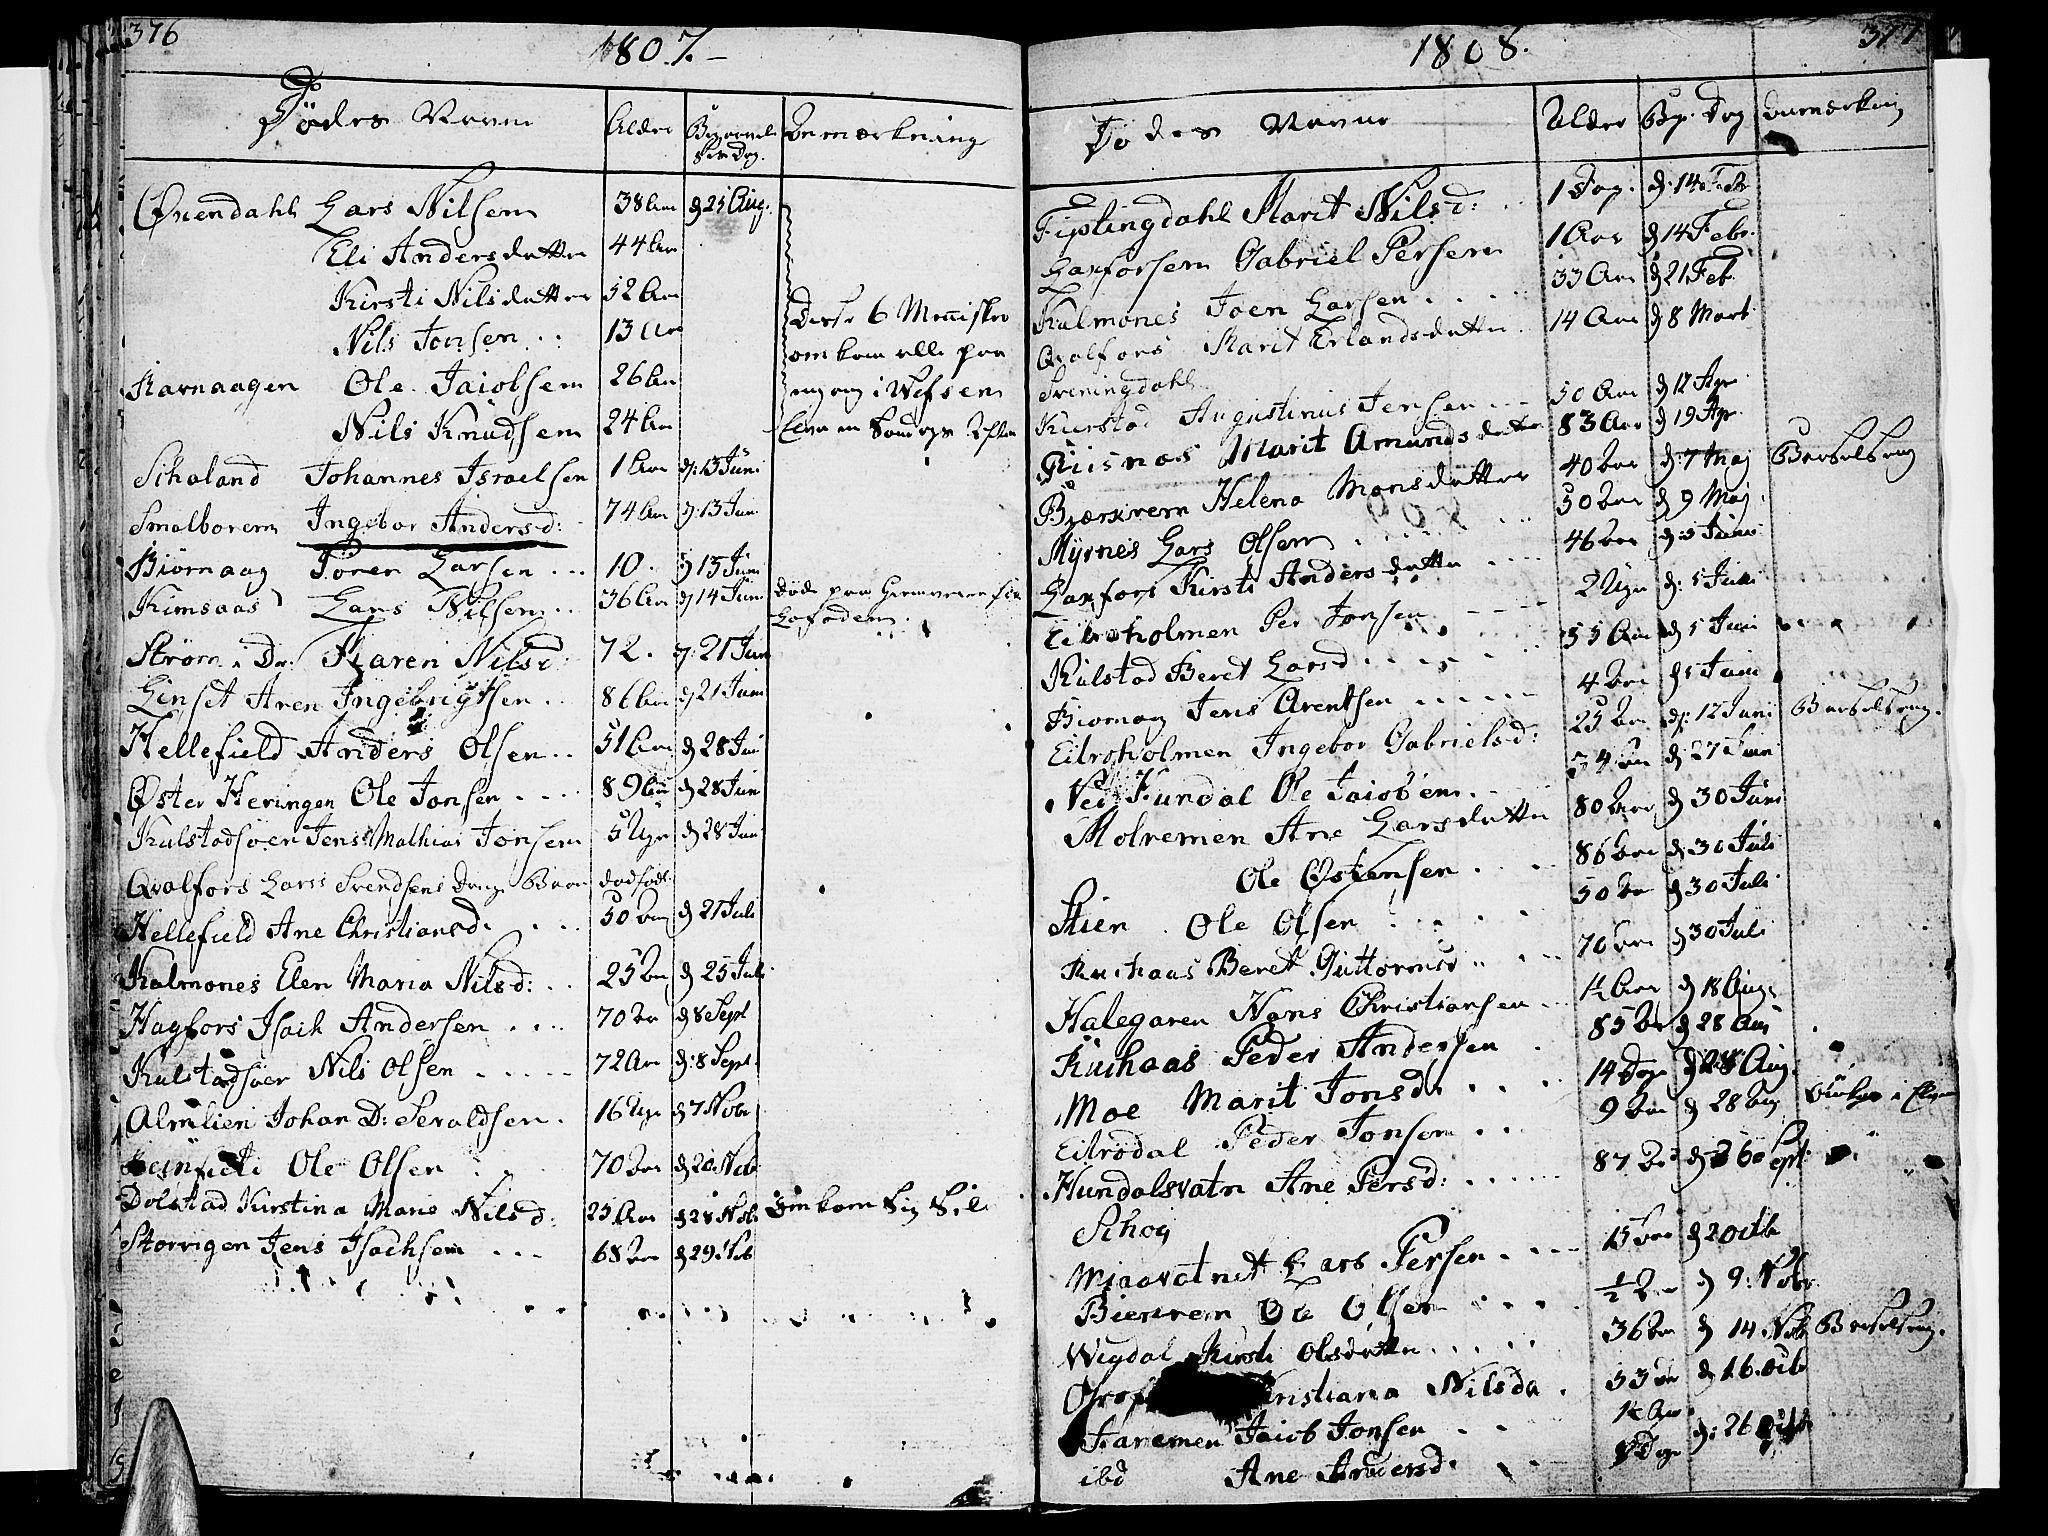 376
1807.
Dødes Navne Alder Begravel: Bemærkning
ses Dag.
Øvendahl Lars Nilsen 38 Aar d 25 Aug.
Eli Andersdatter 44 Aar
Kirsti Nilsdatter 52 Aar
Nils Jonsen .. 13 Aar
Disse 6 Mennisker
omkom alle paa
Ravnaagen Ole Jacobsen 26 Aar
engang i Wefsen
Nils Knudsen 24 Aar
Elven en Søndags Aften
Schaland Johannes Israelsen 1 Aar d: 13 Juni
Smalboren Ingebor Andersd: 74 Aar d: 13 Jun
Biørnaag Tören Larsen ... 10. d 13 Jun
Kimsaas Lars Nilsen .. 36 Aar d 14 Juni døde paa Hiemreisen fra
Lofoden.
Strøm i Dr: Karen Nilsd: 72. d: 21 Jun
Linset Aren Ingebrigtsen .. 86 Aar d 21 Juni
Hellefield Anders Olsen .. 51 Aar d 28 Jun
Øster Heringen Ole Jonsen .... 89 Aar d 28 Jun
Kulstadsöen Jens Mathias Jonsen 5 Uger d 28 Jun
Qvalfors Lars Svendsens Drenge Barn dødfødt
Hellefield Ane Christiansd. ... 50 Aar d 21 Juli
Kalmones Elen Maria Nilsd: .. 25 Aar d 25 Juli
Hagfors Isach Andersen .... 70 Aar d 8 Sept
Kulstadsöen Nils Olsen ..... 72 Aar d: 8 Sept.
Almlien Johan D: Peraldsen. 16 Uger d 7 Nobr
Ole Olsen ... 70 Aar d 20 Nob
Dolstad Kirstina Marie Nilsd: 25 Aar d 28 Nob. omkom sig Sel
Storvigen Jens Isachsen ... 68 Aar d 29 Nob
377
1808.
Dødes Navne Alder Bgr. Dag Anmærkning
Fiplingdahl Marit Nilsd: .. 1 Dag. d: 14 Febr
Laxforsen Gabriel Persen 1 Aar d 14 Febr.
Kalmones Joen Larsen .... 33 Aar d 21 Feb.
Qvalfors Marit Erlandsdatter 14 Aar d 8 Mart
Sveningdahl
Kulstad Augustinus Jensen ... 50 Aar d 12 Apr
Riisnæs Marit Amundsdatter 83 Aar d 19 Apr.
Biærkrem Helena Monsdatter 40 Aar d: 7 Maj Barselseng
Myrnes Lars Olsen ..... 50 Aar d 9 Maj.
Laxfors Kirsti Andersdatter .... 46 Aar d: 5 Juni
Eiteraaholmen Per Jonsen .... 2 Uger d: 5 Juni
Kulstad Beret Larsd ..... 55 Aar d 5 Juni
Biornag Jens Arentsen ...... 4 Aar d 5 Juni
Eitroholmen Ingebor Gabrielsd: 25 Aar d: 12 Juni Barselseng.
Ved Hundal Ole Jacobsen. ... 34 Aar d: 27 Juni
Molremen Ane Larsdatter 80 Aar d 30 Juni
Ole Østensen .... 86 Aar d: 30 Juli
Stien . Ole Olsen ..... 50 Aar d 30 Juli
Kuhaas Beret Guttormsd ..... 70 Aar d 30 Juli
Halegaren Hans Christiansen .. 1½ Aar d 18 Aug.
Kuhaas Peder Andersen . 85 Aar d 28 Aug
Moe Marit Jonsd. .... 14 Dage d 28 Aug.
Eitrodal Peder Jonsen ... 9 Aar d 28 Aug
Hundalsvatn Ane Persd: ...... 87 Aar d Sept:
Schog
Miaavatnet Lars Persen .... 15 Aar d 2 Octb
Bierkrem Ole Olsen .... ½ Aar d 9: Nobr
Wegdal Kirsti Olsdatter ..... 36 Aar d 14 Nob Barselseng.
Christiana Nilsda . 53 Aar d 16 Octb
Favnemen Jacob Jonsen .. d: 26 Octb
ibd Ane Andersd. ..